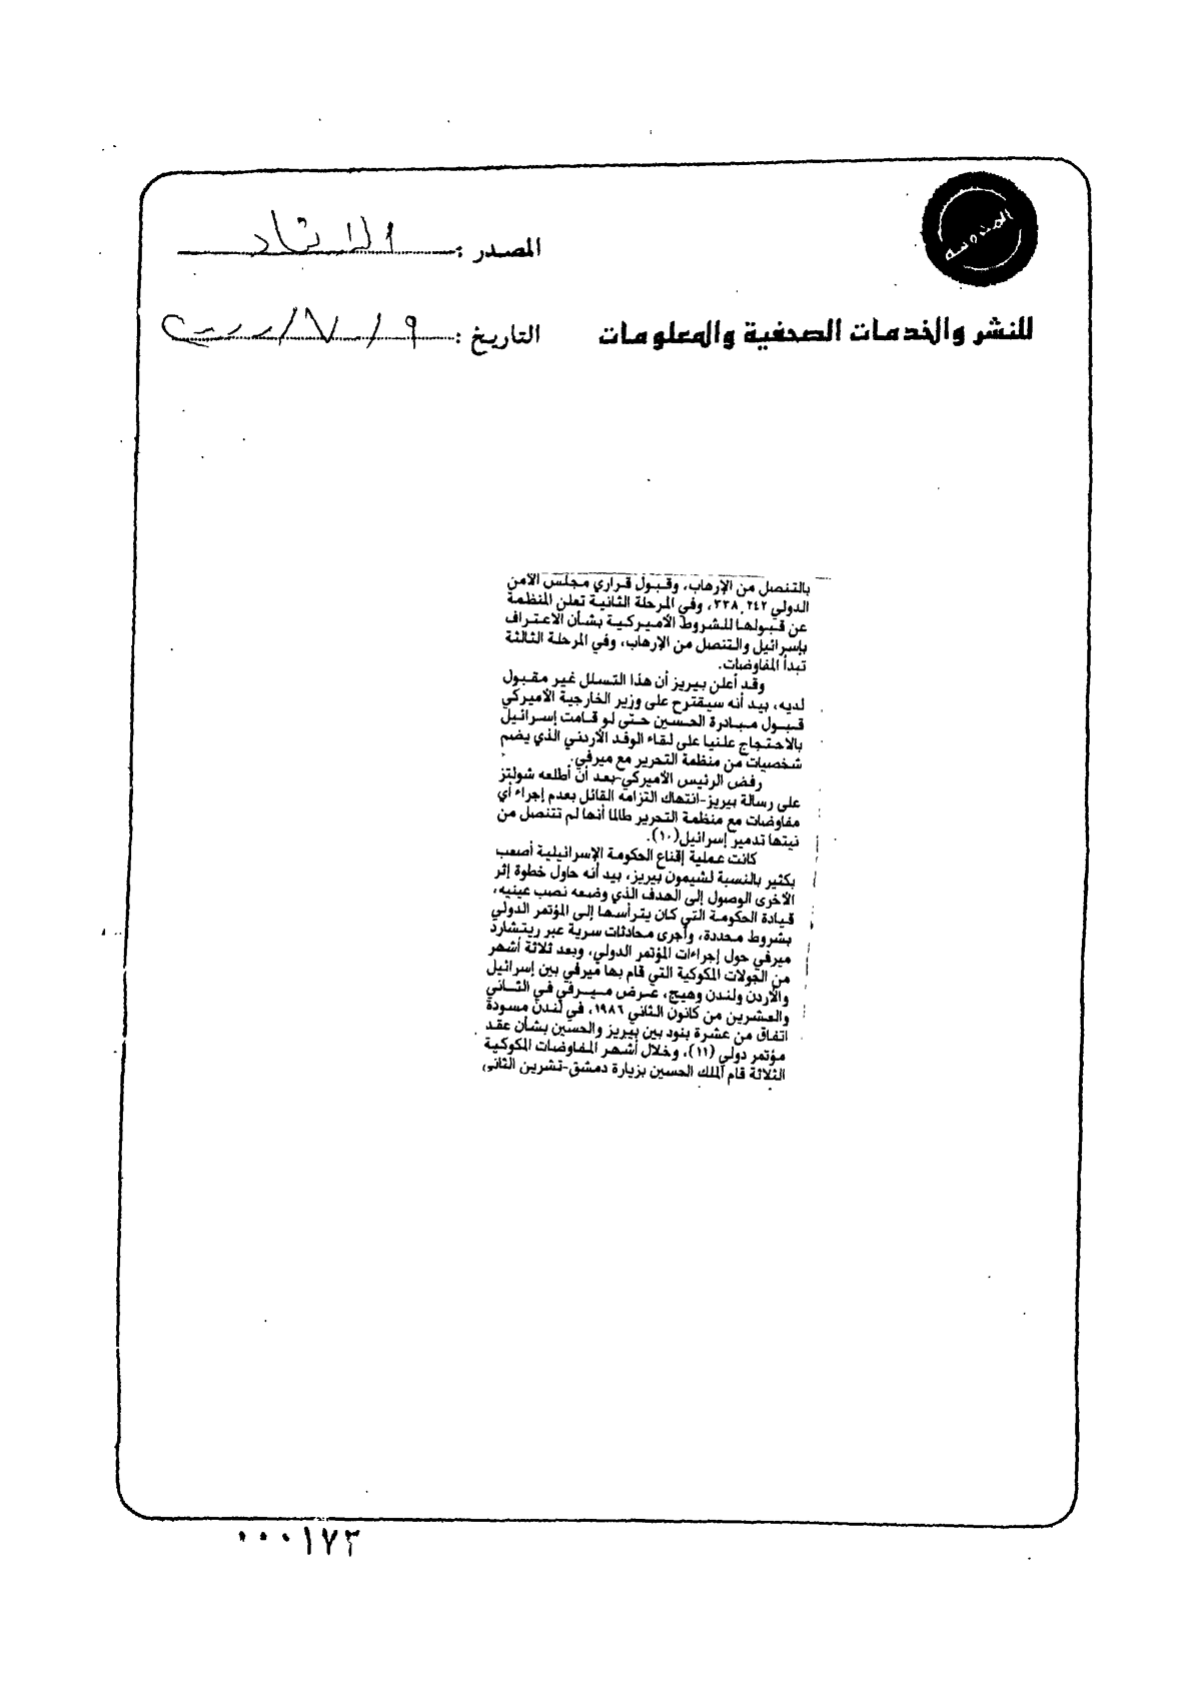 المصدر :
التاريخ : ٩ / ٧ /
للنشر والخدمات الصحفية والمعلومات
بالتنصل من الإرهاب، وقبول قراري مجلس الأمن
الدولي ٢٤٢، ٣٣٨، وفي المرحلة الثانية تعلن المنظمة
عن قبولها للشروط الأميركية بشأن الاعتراف
بإسرائيل والتنصل من الإرهاب، وفي المرحلة الثالثة
تبدأ المفاوضات.
وقد أعلن بيريز أن هذا التسلسل غير مقبول
لديه، بيد أنه سيقترح على وزير الخارجية الأميركي
قبول مبادرة الحسين حتى لو قامت إسرائيل
بالاحتجاج علنيا على لقاء الوفد الأردني الذي يضم
شخصيات من منظمة التحرير مع ميرفي.
رفض الرئيس الأميركي-بعد أن أطلعه شولتز
على رسالة بيريز-انتهاك التزامه القائل بعدم إجراء أي
مفاوضات مع منظمة التحرير طالما أنها لم تتنصل من
نيتها تدمير إسرائيل(١٠).
كانت عملية إقناع الحكومة الإسرائيلية أصعب
بكثير بالنسبة لشيمون بيريز، بيد أنه حاول خطوة إثر
الأخرى الوصول إلى الهدف الذي وضعه نصب عينيه،
قيادة الحكومة التي كان يترأسها إلى المؤتمر الدولي
بشروط محددة، وأجرى محادثات سرية عبر ريتشارد
ميرفي حول إجراءات المؤتمر الدولي، وبعد ثلاثة أشهر
من الجولات المكوكية التي قام بها ميرفي بين إسرائيل
والأردن ولندن وهيج، عرض ميرفي في الثاني
والعشرين من كانون الثاني ١٩٨٦، في لندن مسودة
اتفاق من عشرة بنود بين بيريز والحسين بشأن عقد
مؤتمر دولي (١١)، وخلال أشهر المفاوضات المكوكية
الثلاثة قام الملك الحسين بزيارة دمشق-تشرين الثاني
٠٠٠١٧٣